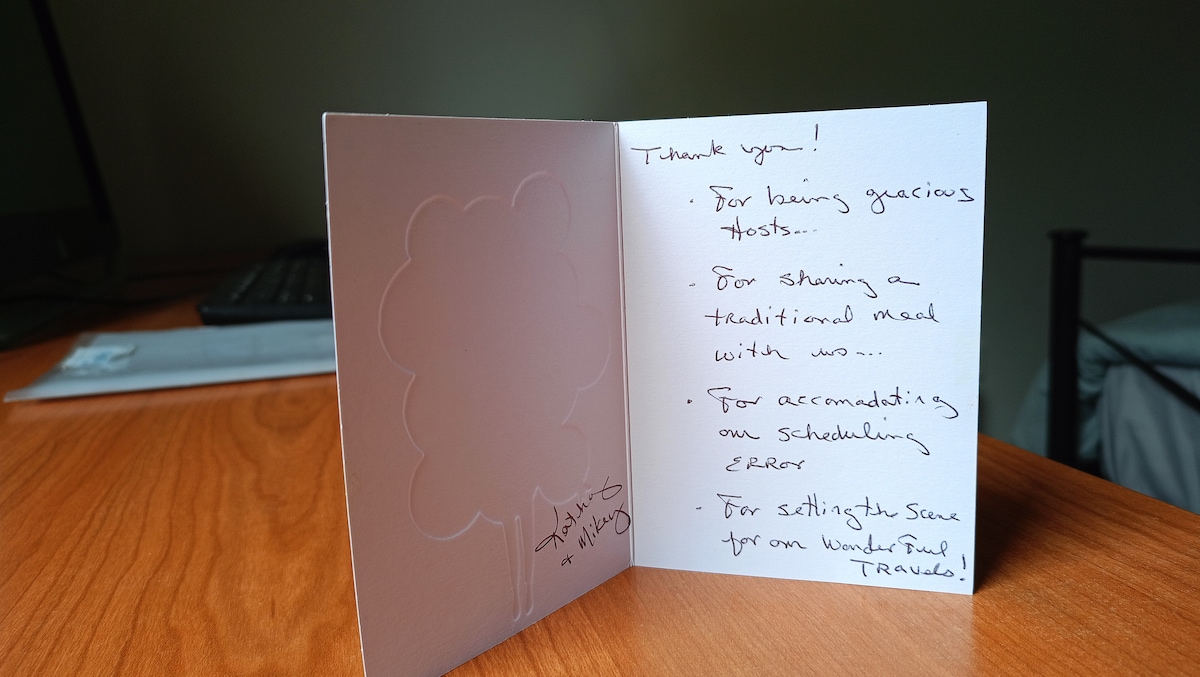 Kathy
+ Mikey
Thank you!
· For being gracious
Hosts...
- For sharing a
traditional meal
with us....
· For accomadating
our scheduling
ERROR
- For setting the Scene
for our Wonderful
TRAVELS!